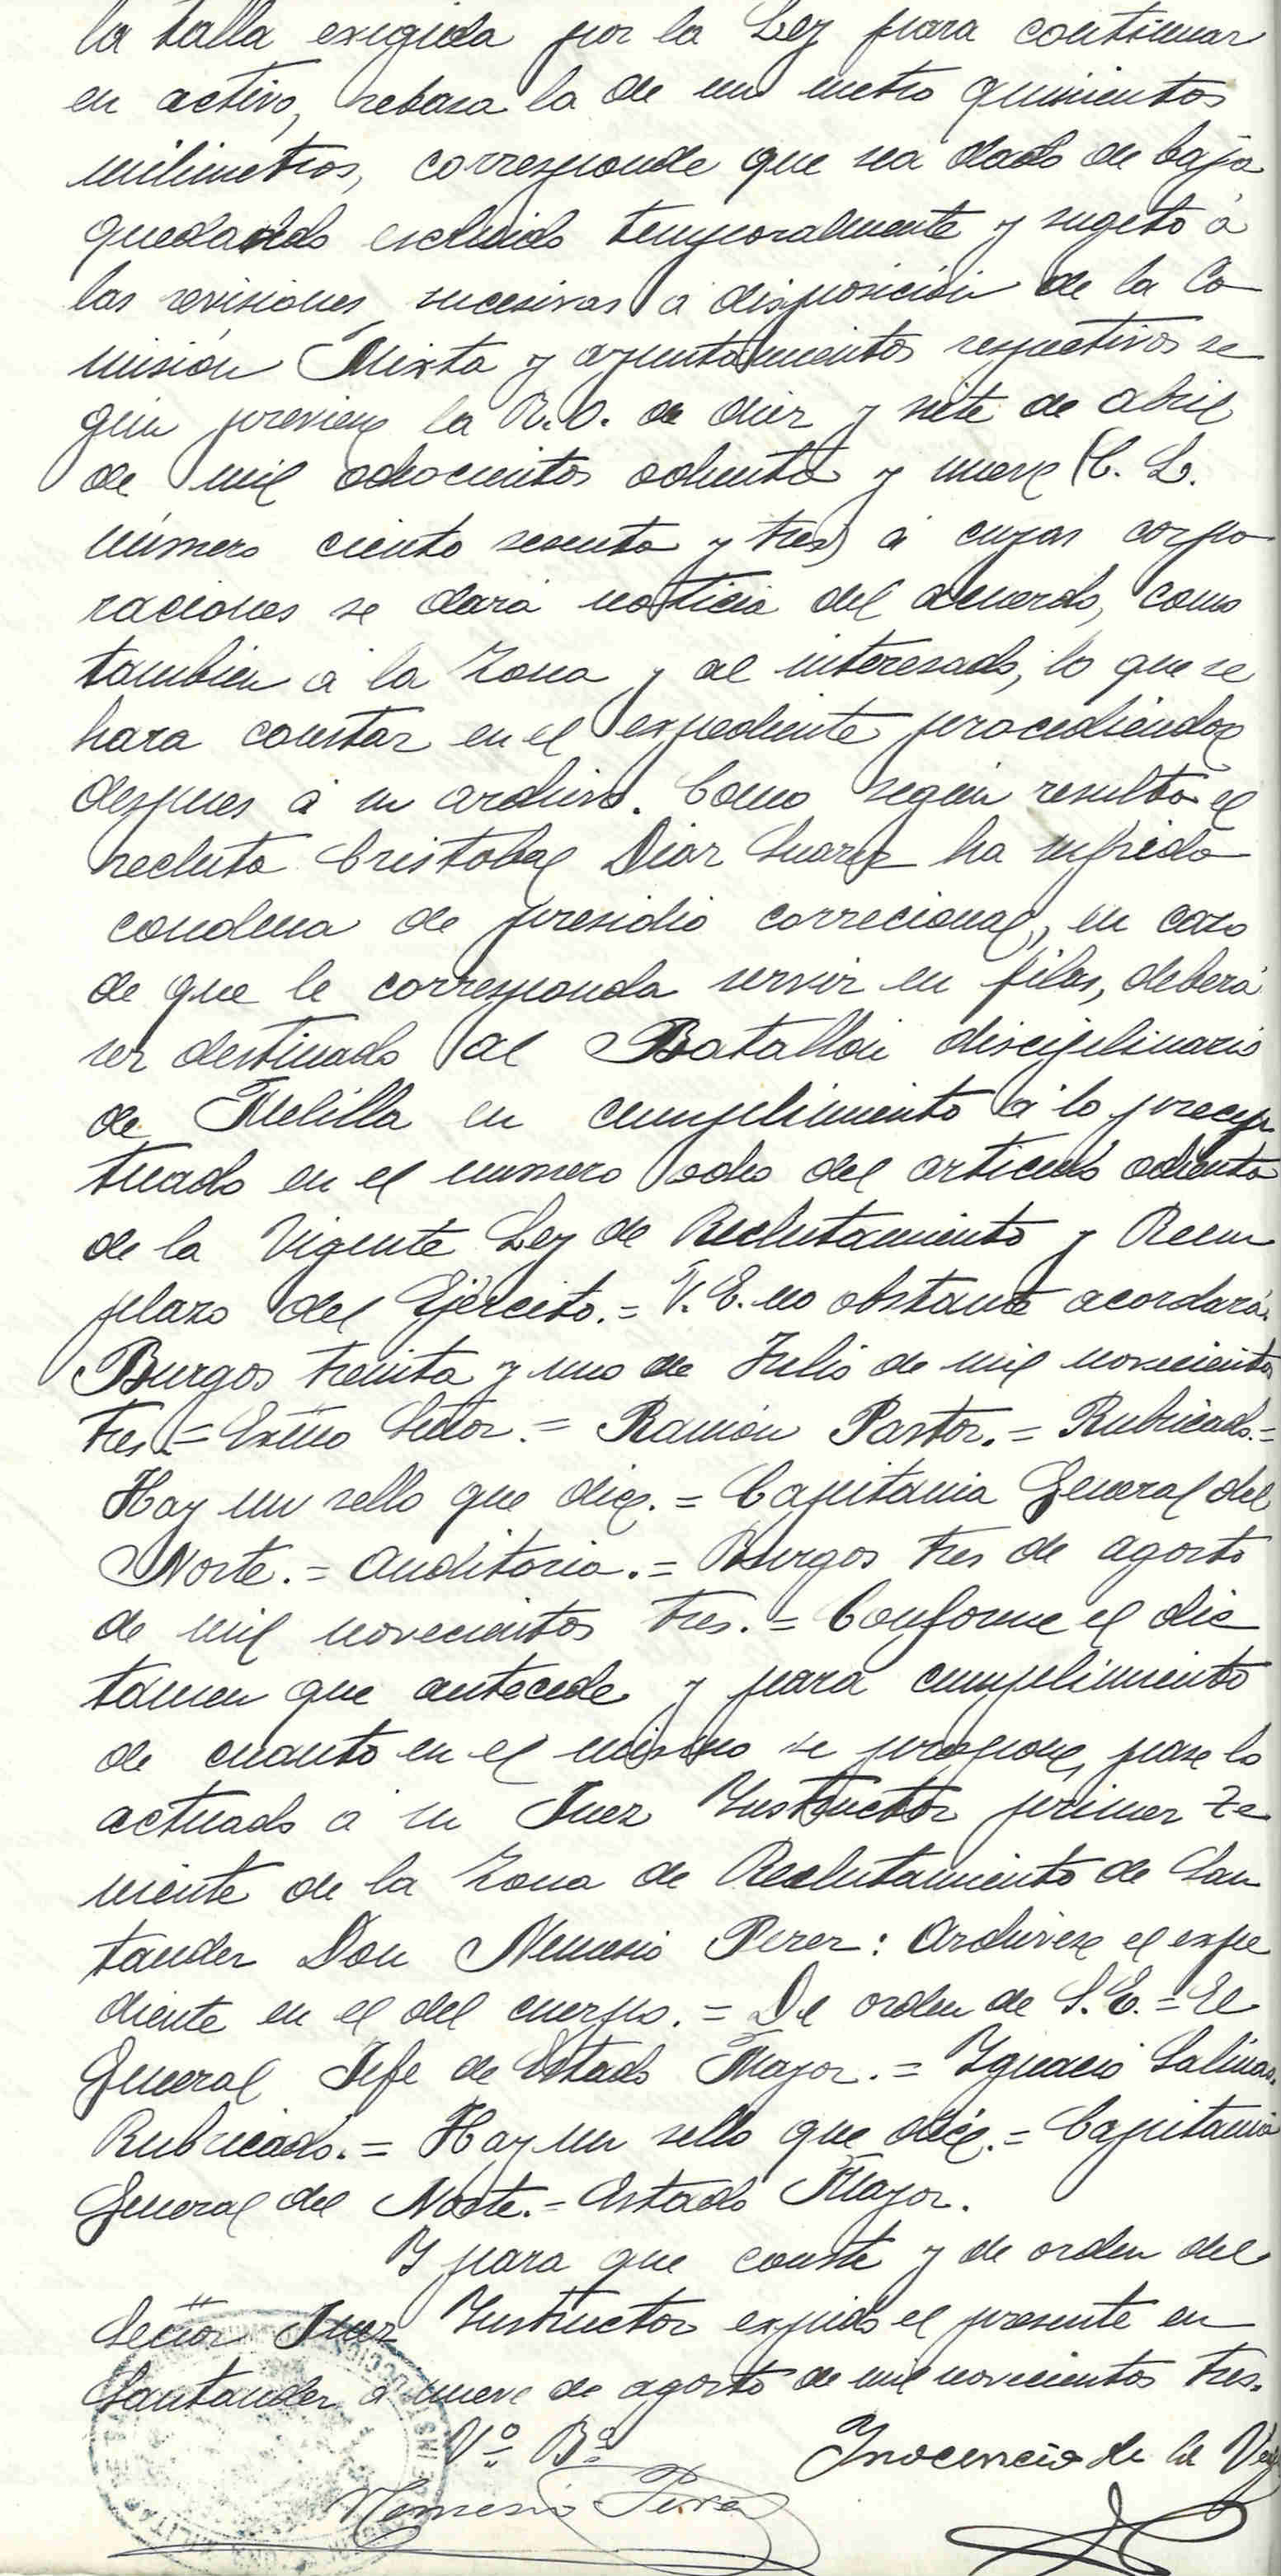 la talla exigida por la Ley para continuar
en activo, rebasa la de un metro quinientos
milimetros, corresponde que sea dado de baja
quedando escluido temporalmente y sugeto á
las revisiones sucesivas á disposición de la Co
misión Mixta y ayuntamientos respectivos se
gún previene la R.O. de diez y siete de abril
de mil ochocientos ochenta y nueve (C. L.
número ciento sesenta y tres) á cuyas corpo
raciones se dará noticia del acuerdo, como
tambien á la Zona y al interesado, lo que se
hara constar en el expediente procediéndose
despues á su archivo. Como según resulta el
recluta Cristobal Diaz Suarez ha sufrido
condena de presidio correcional, en caso
de que le corresponda servir en filas, deberá
ser destinado al Batallón disciplinario
de Melilla en cumplimiento á lo precep
tuado en el numero ocho del articulo ochenta
de la Vigente Ley de Reclutamiento y Reem
plazo del Ejército.= V.E. no obstante acordará.
Burgos treinta y uno de Julio de mil novecientos
tres.= Exmo Señor.= Ramón Pastor.= Rubricado.=
Hay un sello que dice.= Capitania General del
Norte.= Auditoria.= Burgos tres de agosto
de mil novecientos tres.= Conforme el dic
tamen que antecede y para cumplimiento
de cuanto en el mismo se propone, pase lo
actuado á su Juez Instructor primer Te
niente de la Zona de Reclutamiento de San
tander Don Nemesio Perez: Archivese el expe
diente en el del cuerpo.= De orden de S.E.= El
General Jefe de Estado Mayor.= Ygnacio Salinas.
Rubricado.= Hay un sello que dice.= Capitania
General del Norte.= Estado Mayor.
Y para que conste y de orden del
Señor Juez Instructor expido el presente en
Santander á nueve de agosto de mil novecientos tres.
Vº Bº
Inocencio de la Vega
Nemesio Perez